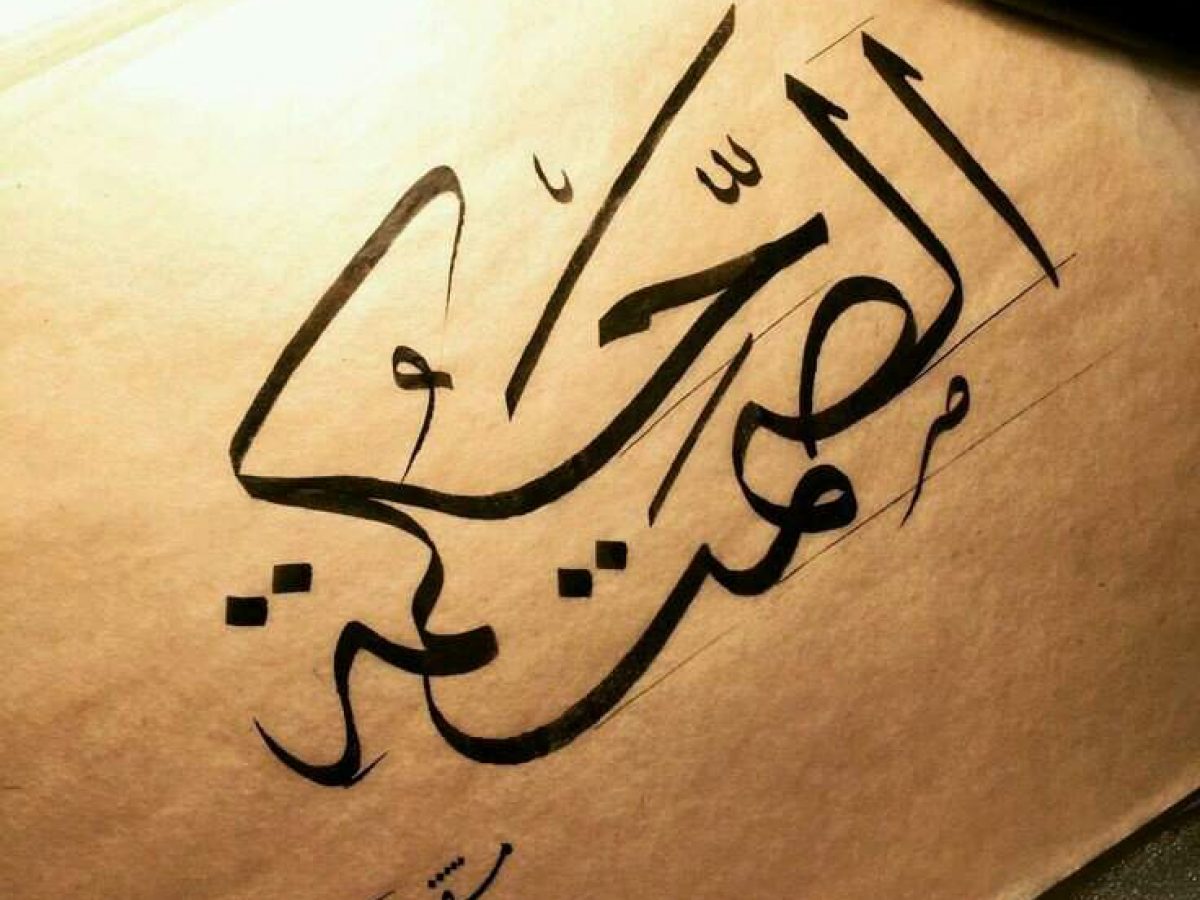 الصّمت حكمة